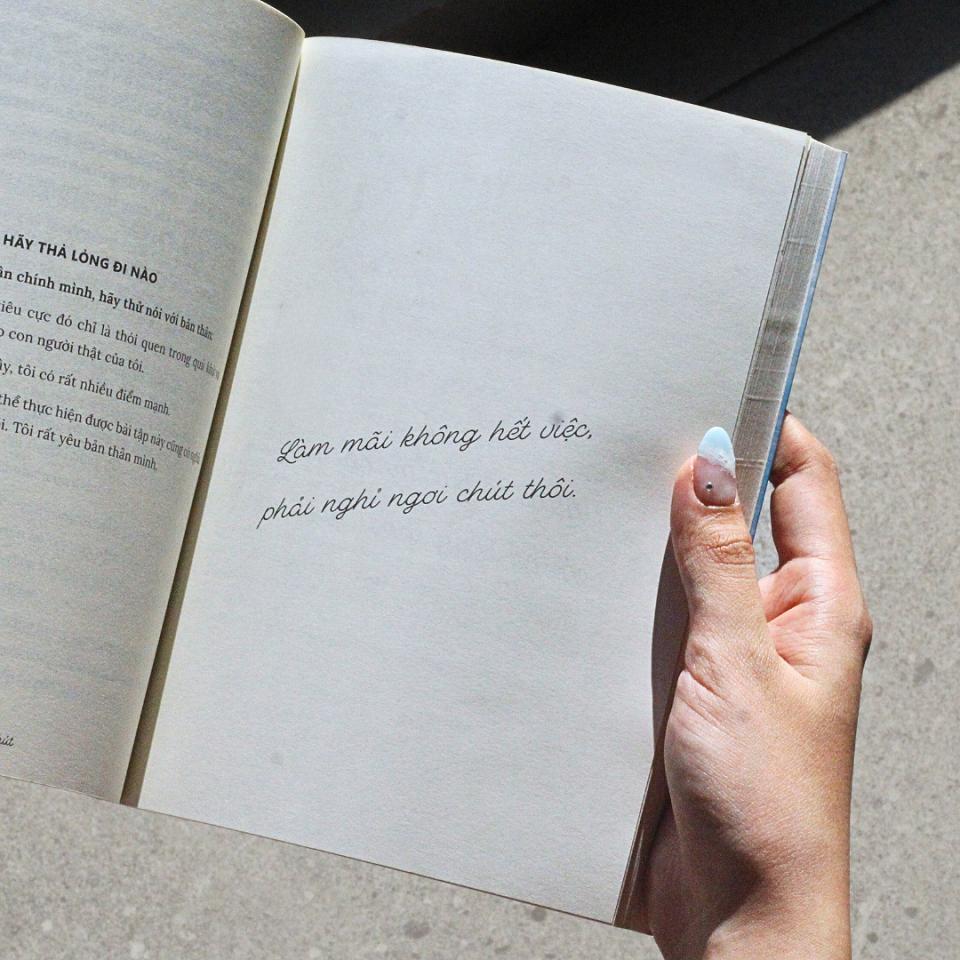 HÃY THẢ LỎNG ĐI NÀO
chính mình, hãy thử nói với bản thân:
cực đó chỉ là thói quen trong quá
con người thật của tôi.
tôi có rất nhiều điểm mạnh.
thể thực hiện được bài tập này cũng có nghĩa
Tôi rất yêu bản thân mình.
Làm mãi không hết việc,
phải nghỉ ngơi chút thôi.